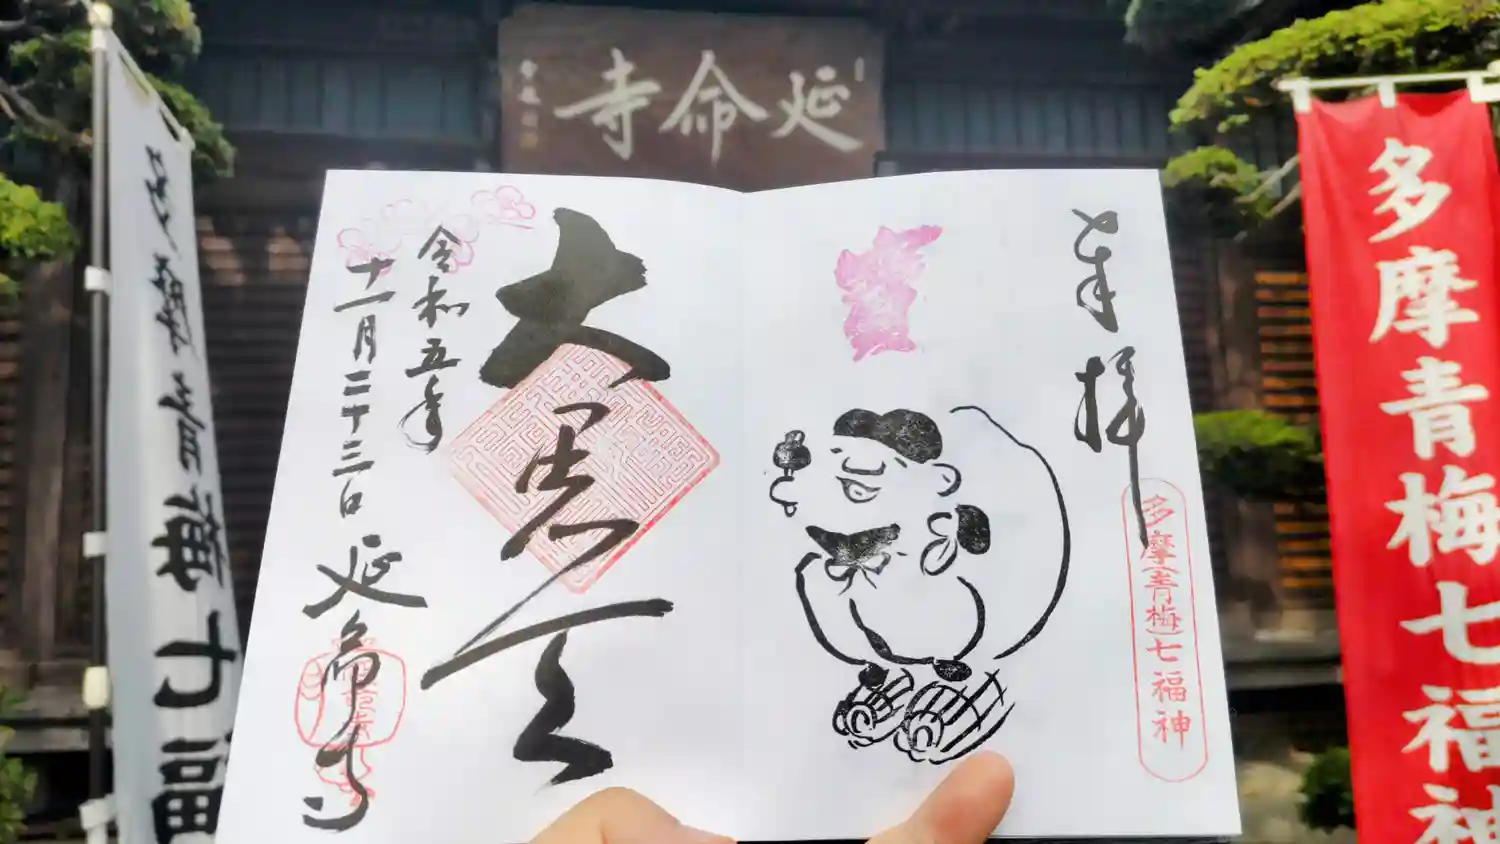 延命寺
奉拝
多摩(青梅)七福神
大黒天
令和五年
十一月二十三日
延命寺
多摩青梅七福神
多摩青梅七福